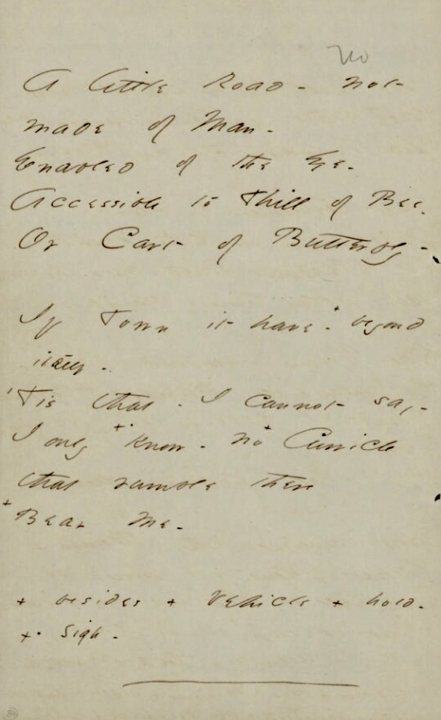 No
A little Road - not
made of Man -
Enabled of the Eye -
Accessible to Thill of Bee -
Or Cart of Butterfly -
If Town it have + beyond
itself -
'Tis that - I cannot say -
I only + know - no + Curricle
that rumble there
+ Bear Me -
+ besides + Vehicle + hold -
+ sigh -